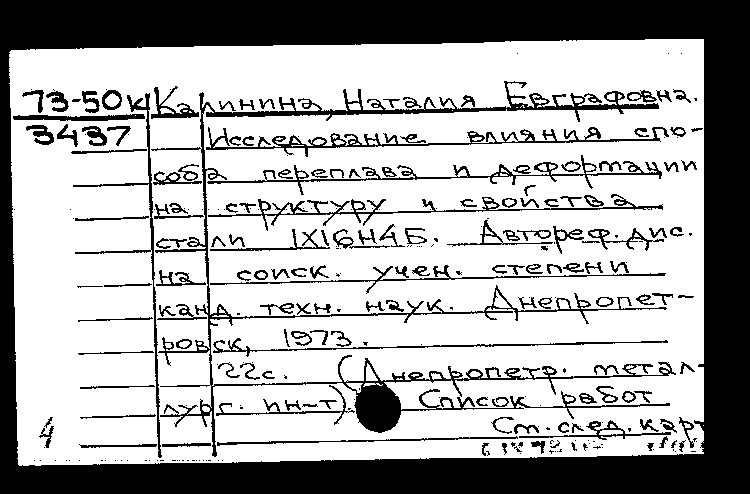 73-50к Калинина, Наталия Евграфовна.
3437 Исследование влияния спо-
соба переплава и деформации
на структуру и свойства
стали 1Х16Н4Б. Автореф. дис.
на соиск. учен. степени
канд. техн. наук. Днепропет-
ровск, 1973.
22с. (Днепропетр. метал-
лург. ин-т). Список работ
4 Ст. след. карт